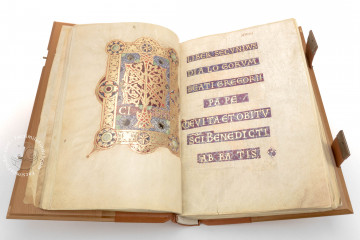 LIBER SECUNDUS
DIALOGORUM
BEATI GREGORII
PAPE
DE VITA ET OBITU
SCI BENEDICTI
ABBATIS